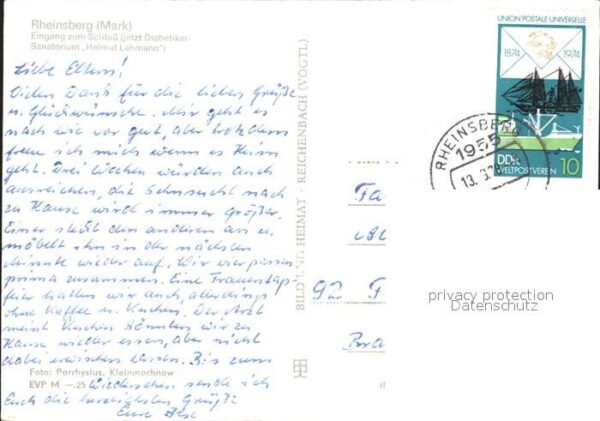 Rheinsberg (Mark)
Eingang zum Schloß (jetzt Diabetiker-
Sanatorium „Helmut Lehmann")
Liebe Eltern!
Vielen Dank für die lieben Grüße
u. Glückwünsche. Mir geht es
nach wie vor gut, aber trotzdem
freue ich mich wenn es Heim
geht. Drei Wochen würden auch
ausreichen, die Sehnsucht nach
zu Hause wird immer größer.
Einer steckt den anderen an u.
möbelt ihn in der nächsten
Minute wieder auf. Wir vier passen
prima zusammen. Eine Frauentags-
feier hatten wir auch, allerdings
ohne Kaffee u. Kuchen. Der Arzt
meint Kuchen könnten wir zu
Hause wieder essen, aber nicht
dabei erwischen lassen. Bis zum
Foto: Porrhysius, Kleinmachnow
EVP M —.25 Wiedersehen sende ich
Euch die herzlichsten Grüße
Eure
BILD UND HEIMAT · REICHENBACH (VOGTL)
UNION POSTALE UNIVERSELLE
1874 1974
DDR 10
WELTPOSTVEREIN
RHEINSBERG
1955
13. 3.
Fa
92 F
Bra
privacy protection
Datenschutz